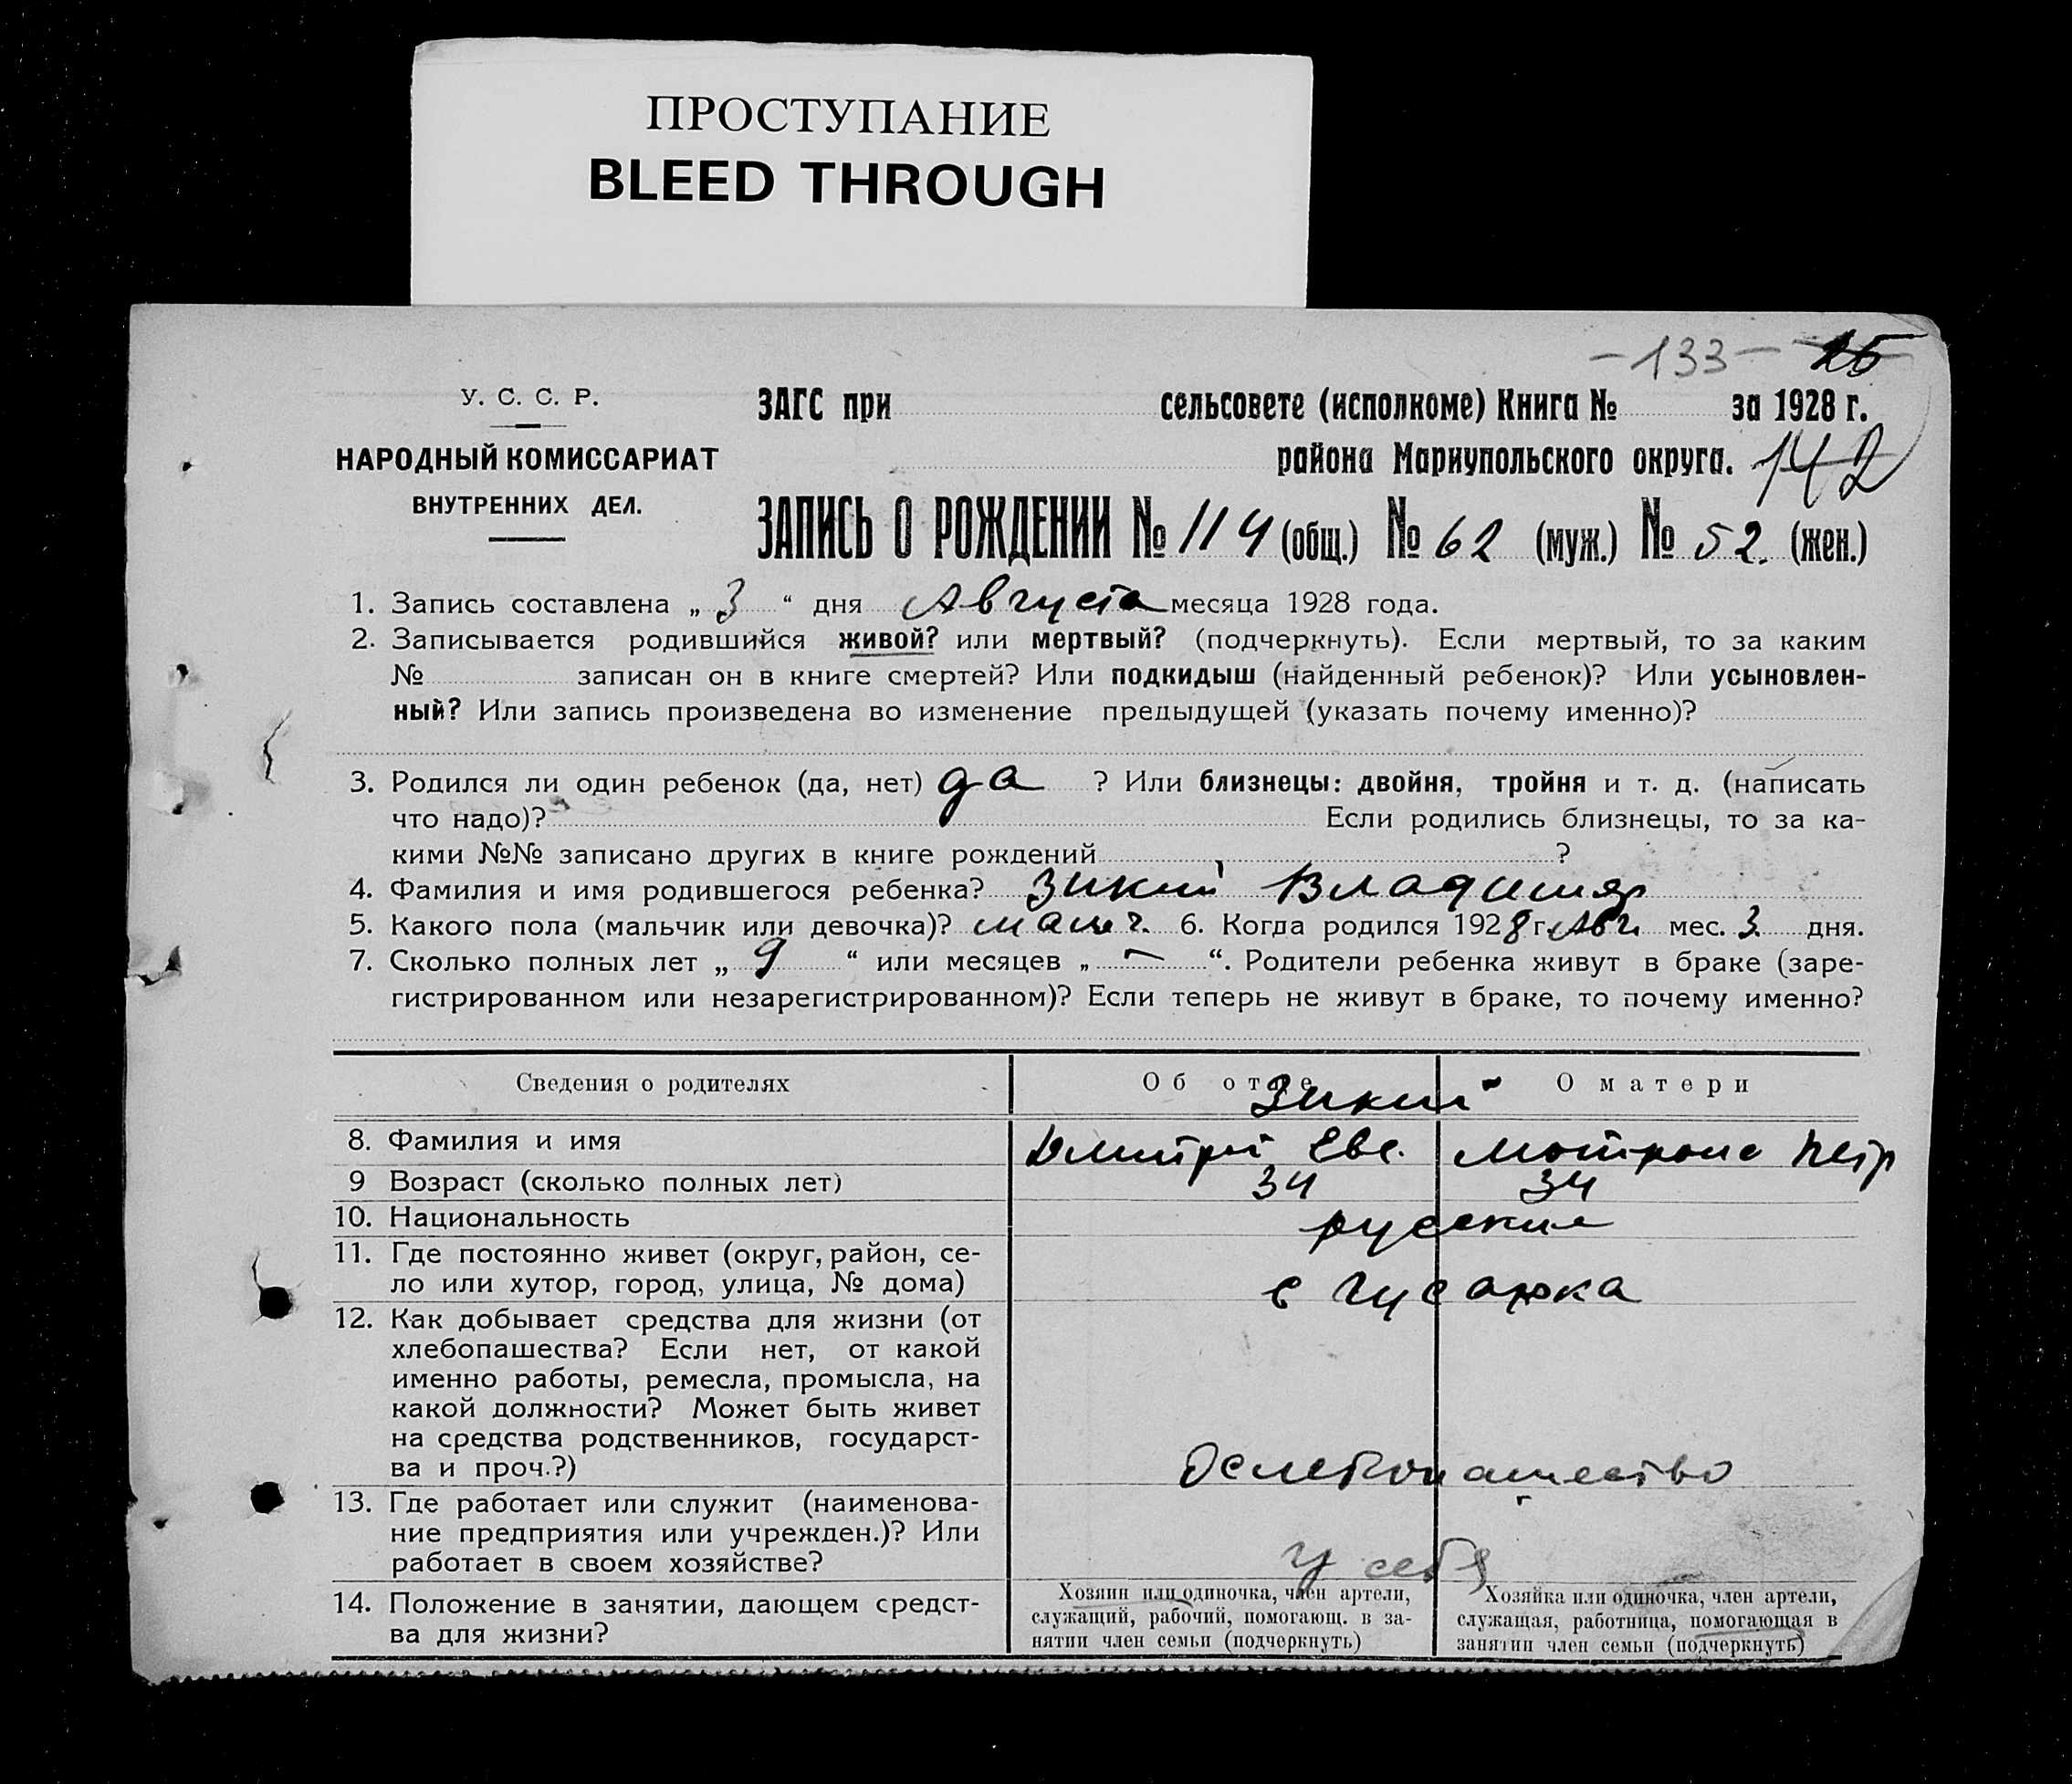 ПРОСТУПАНИЕ
BLEED THROUGH
-133- 15
У. С. С. Р.
НАРОДНЫЙ КОМИССАРИАТ
ВНУТРЕННИХ ДЕЛ.
ЗАГС при сельсовете (исполкоме) Книга № за 1928 г.
района Мариупольского округа. 142
ЗАПИСЬ О РОЖДЕНИИ № 114 (общ.) № 62 (муж.) № 52. (жен.)
1. Запись составлена „ 3 “ дня Августа месяца 1928 года.
2. Записывается родившийся живой? или мертвый? (подчеркнуть). Если мертвый, то за каким
№ записан он в книге смертей? Или подкидыш (найденный ребенок)? Или усыновлен-
ный? Или запись произведена во изменение предыдущей (указать почему именно)?
3. Родился ли один ребенок (да, нет) да ? Или близнецы: двойня, тройня и т. д. (написать
что надо)? Если родились близнецы, то за ка-
кими №№ записано других в книге рождений ?
4. Фамилия и имя родившегося ребенка? Зикий Владимир
5. Какого пола (мальчик или девочка)? мальч. 6. Когда родился 1928 г. Авг. мес. 3. дня.
7. Сколько полных лет „ 9 “ или месяцев „ – “. Родители ребенка живут в браке (заре-
гистрированном или незарегистрированном)? Если теперь не живут в браке, то почему именно?
Сведения о родителях Об отце О матери
Зикий
8. Фамилия и имя Дмитрий Евс. Мотрона Петр
9 Возраст (сколько полных лет) 34 34
10. Национальность русские
11. Где постоянно живет (округ, район, се-
ло или хутор, город, улица, № дома) с Гусарка
12. Как добывает средства для жизни (от
хлебопашества? Если нет, от какой
именно работы, ремесла, промысла, на
какой должности? Может быть живет
на средства родственников, государст-
ва и проч.?)
13. Где работает или служит (наименова-
ние предприятия или учрежден.)? Или
работает в своем хозяйстве? у себя
14. Положение в занятии, дающем средст-
ва для жизни?
Хозяин или одиночка, член артели,
служащий, рабочий, помогающ. в за-
нятии член семьи (подчеркнуть)
Хозяйка или одиночка, член артели,
служащая, работница, помогающая в
занятии член семьи (подчеркнуть)